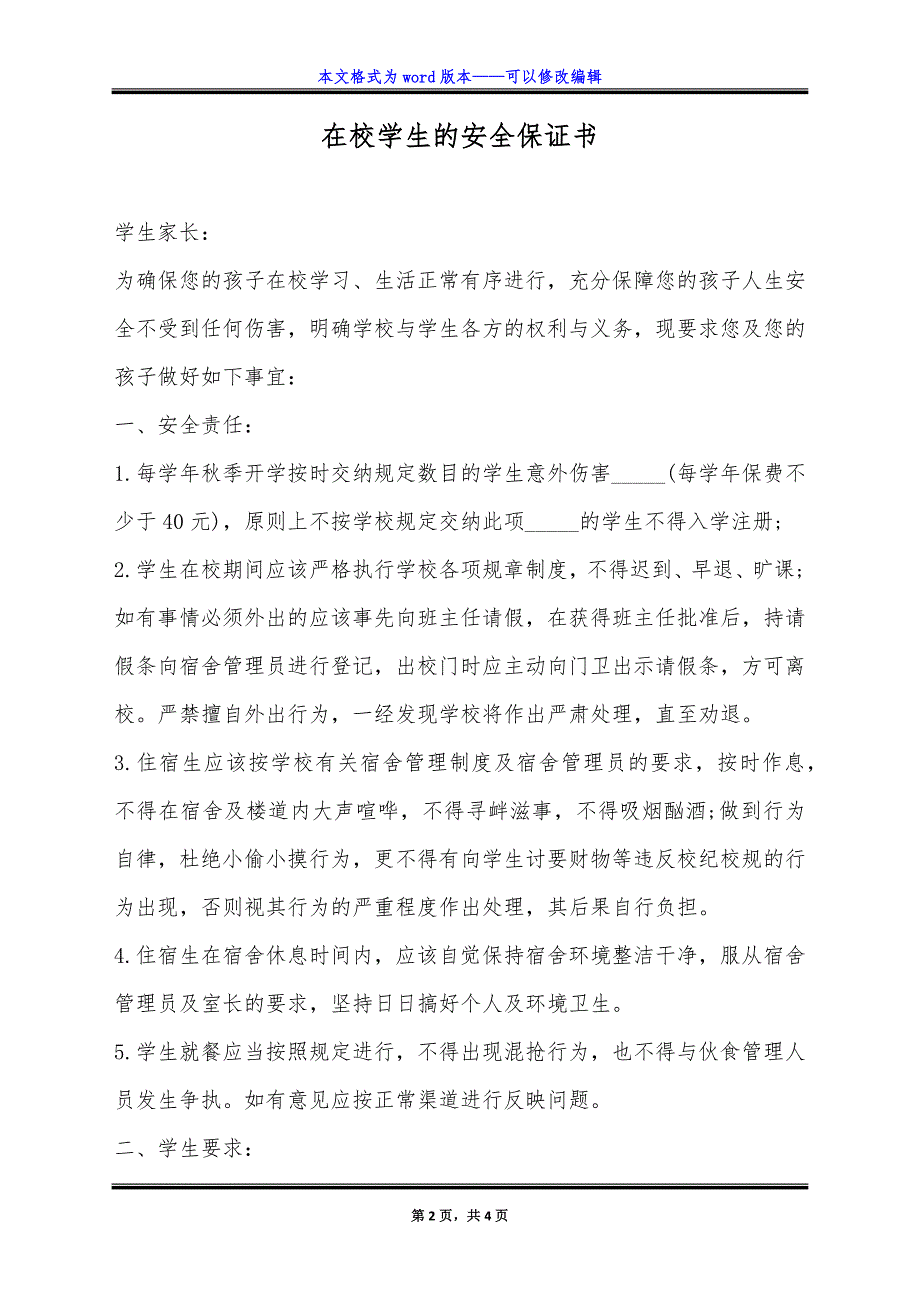 本文格式为 word 版本——可以修改编辑
在校学生的安全保证书
学生家长:
为确保您的孩子在校学习、生活正常有序进行，充分保障您的孩子人生安
全不受到任何伤害，明确学校与学生各方的权利与义务，现要求您及您的
孩子做好如下事宜:
一、安全责任:
1.每学年秋季开学按时交纳规定数目的学生意外伤害_____(每学年保费不
少于 40 元)，原则上不按学校规定交纳此项_____的学生不得入学注册;
2.学生在校期间应该严格执行学校各项规章制度，不得迟到、早退、旷课;
如有事情必须外出的应该事先向班主任请假，在获得班主任批准后，持请
假条向宿舍管理员进行登记，出校门时应主动向门卫出示请假条，方可离
校。严禁擅自外出行为，一经发现学校将作出严肃处理，直至劝退。
3.住宿生应该按学校有关宿舍管理制度及宿舍管理员的要求，按时作息，
不得在宿舍及楼道内大声喧哗，不得寻衅滋事，不得吸烟酗酒;做到行为
自律，杜绝小偷小摸行为，更不得有向学生讨要财物等违反校纪校规的行
为出现，否则视其行为的严重程度作出处理，其后果自行负担。
4.住宿生在宿舍休息时间内，应该自觉保持宿舍环境整洁干净，服从宿舍
管理员及室长的要求，坚持日日搞好个人及环境卫生。
5.学生就餐应当按照规定进行，不得出现混抢行为，也不得与伙食管理人
员发生争执。如有意见应按正常渠道进行反映问题。
二、学生要求:
第 2 页，共 4 页